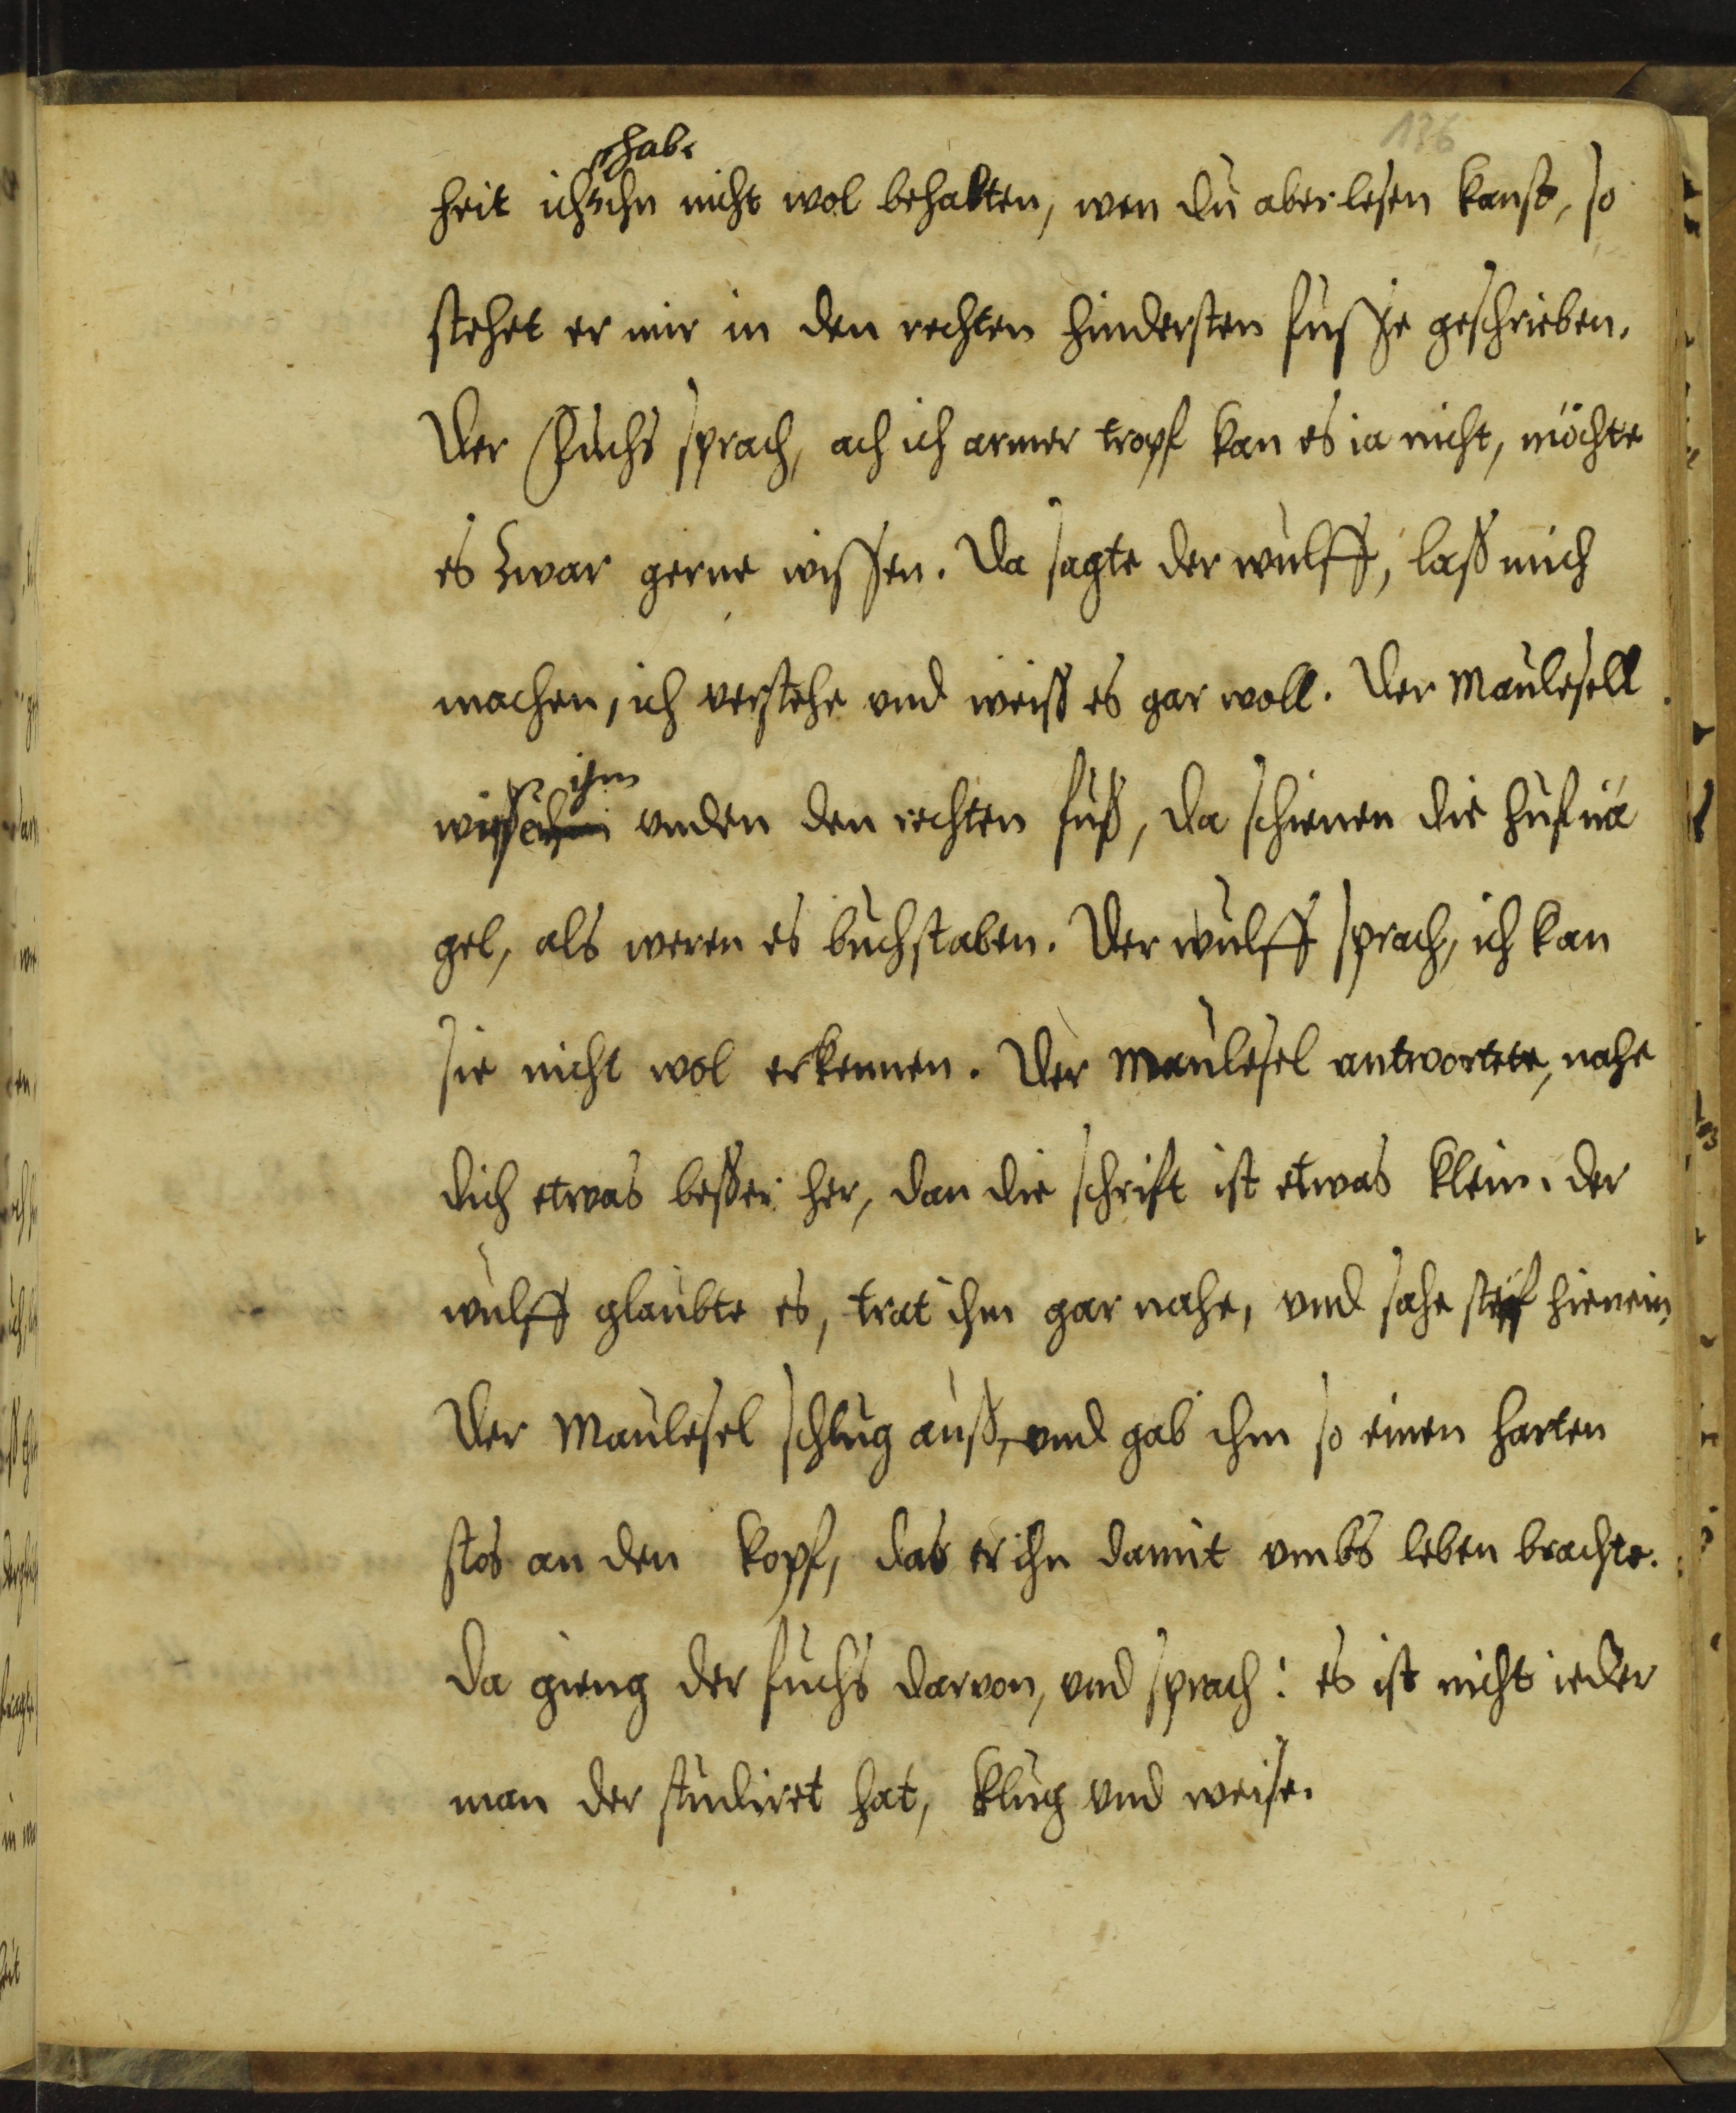 136
habe
heit ich ihn nicht wol behalten, wen du aber lesen kanst, so
stehet er mir in den rechten hindersten fusse geschrieben.
Der Fuchs sprach, ach ich armer tropf kan es ia nicht, möchte
es Zwar gerne wissen. Da sagte der wulff, laß mich
machen, ich verstehe vnd weiß es gar woll. Der Maulesell
ihm
vnden den rechten fuß, da schienen die hufnä
gel, als weren es buchstaben. Der wulff sprach, ich kan
sie nicht wol erkennen. Der Maulesel antwortete, nahe
dich etwas besser her, dan die schrift ist etwas klein. der
wulff glaubte es, trat ihm gar nahe, vnd sahe steif hienein,
Der Maulesel schlug auß, vnd gab ihm so einen harten
stos an den kopf, das er ihn damit vmbs leben brachte.
Da gieng der fuchs darvon, vnd sprach: es ist nicht ieder
man der studiret hat, klug vnd weise.